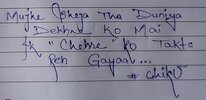 Mujhe Bheja Tha Duniya
Dekhne Ko Mai
Ek "Chehre" Ko Takte
Reh Gayaa...
# Chiku